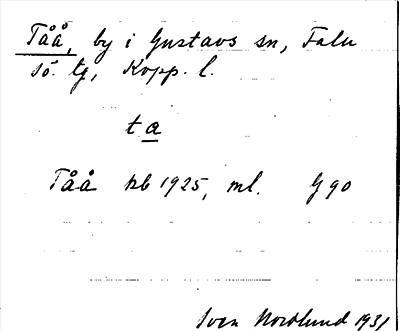 Tåå, by i Gustavs sn, Falu
sö. tg, Kopp. l.
ta
Tåå kb 1925, ml. G 90
Sven Nordlund 1931